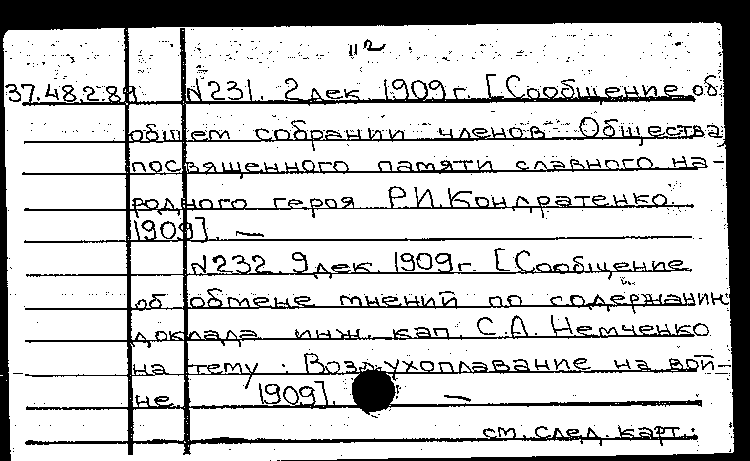 "2
37.48.2.89 №231. 2 дек. 1909 г. [Сообщение об
общем собрании членов Общества,
посвященного памяти славного на-
родного героя Р.И.Кондратенко.
1909]. —
№232. 9 дек. 1909 г. [Сообщение
об обмене мнений по содержанию
доклада инж. кап. С.А. Немченко
на тему: Воздухоплавание на вой-
не 1909]. —
см. след. карт.: